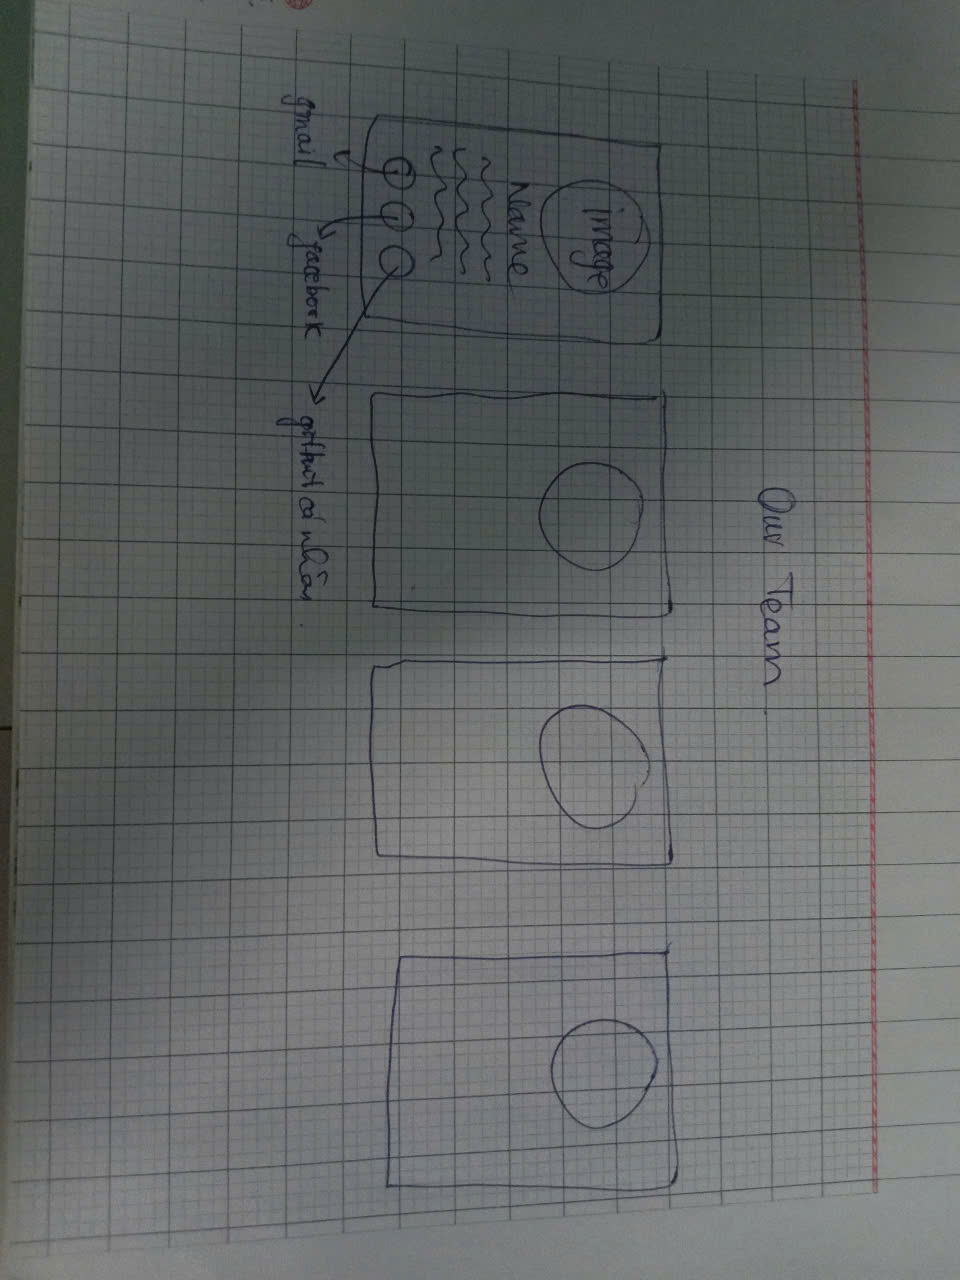 Our Team
image
Name
gmail
facebook
github cá nhân